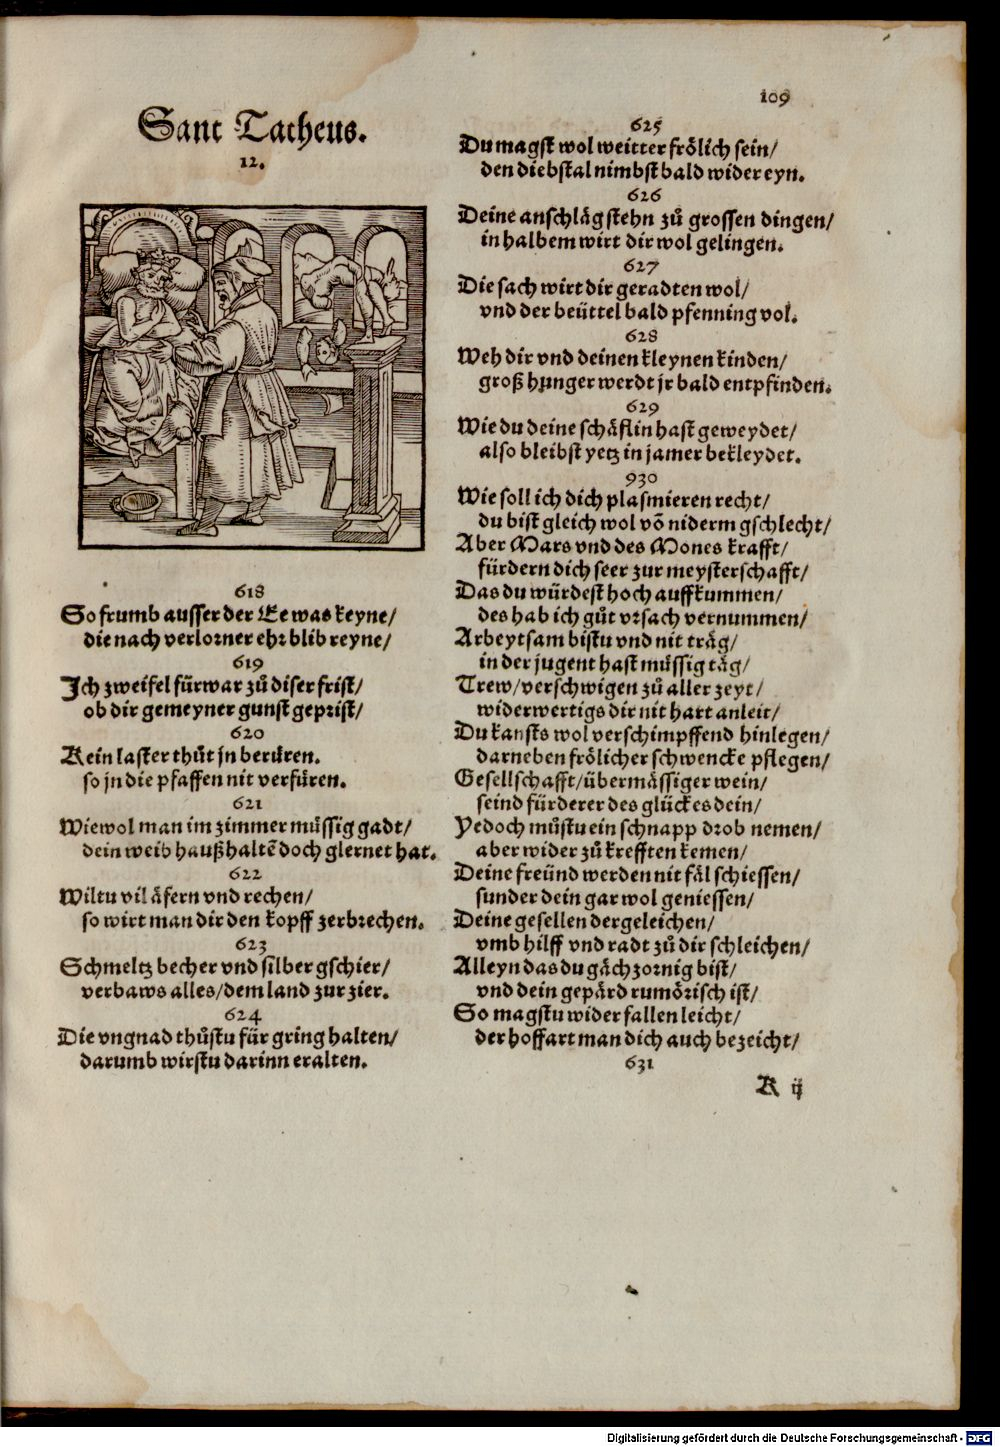 109
Sant Tatheus.
12.
618
So frumb ausser der Ee was keyne/
die nach verlorner ehr blib reyne/
619
Ich zweifel fürwar zů diser frist/
ob dir gemeyner gunst geprist/
620
Kein laster thůt jn berüren.
so jn die pfaffen nit verfüren.
621
Wiewol man im zimmer müssig gadt/
dein weib haußhaltẽ doch glernet hat.
622
Wiltu vil äfern vnd rechen/
so wirt man dir den kopff zerbrechen.
623
Schmeltz becher vnd silber gschier/
verbaws alles/dem land zur zier.
624
Die vngnad thůstu für gring halten/
darumb wirstu darinn eralten.
625
Du magst wol weitter frölich sein/
den diebstal nimbst bald wider eyn.
626
Deine anschläg stehn zů grossen dingen/
in halbem wirt dir wol gelingen.
627
Die sach wirt dir geradten wol/
vnd der beüttel bald pfenning vol.
628
Weh dir vnd deinen kleynen kinden/
groß hunger werdt jr bald entpfinden.
629
Wie du deine schäflin hast geweydet/
also bleibst yetz in jamer bekleydet.
930
Wie soll ich dich plasmieren recht/
du bist gleich wol võ niderm gschlecht/
Aber Mars vnd des Mones krafft/
fürdern dich seer zur meysterschafft/
Das du würdest hoch auffkummen/
des hab ich gůt vrsach vernummen/
Arbeytsam bistu vnd nit träg/
in der jugent hast müssig täg/
Trew/verschwigen zů aller zeyt/
widerwertigs dir nit hart anleit/
Du kansts wol verschimpffend hinlegen/
darneben frölicher schwencke pflegen/
Gesellschafft/übermässiger wein/
seind fürderer des glückes dein/
Yedoch můstu ein schnapp drob nemen/
aber wider zů krefften kemen/
Deine freünd werden nit fäl schiessen/
sunder dein gar wol geniessen/
Deine gesellen dergeleichen/
vmb hilff vnd radt zů dir schleichen/
Alleyn das du gäch zornig bist/
vnd dein gepärd rumörisch ist/
So magstu wider fallen leicht/
der hoffart man dich auch bezeicht/
631
K ij
Digitalisierung gefördert durch die Deutsche Forschungsgemeinschaft - DFG